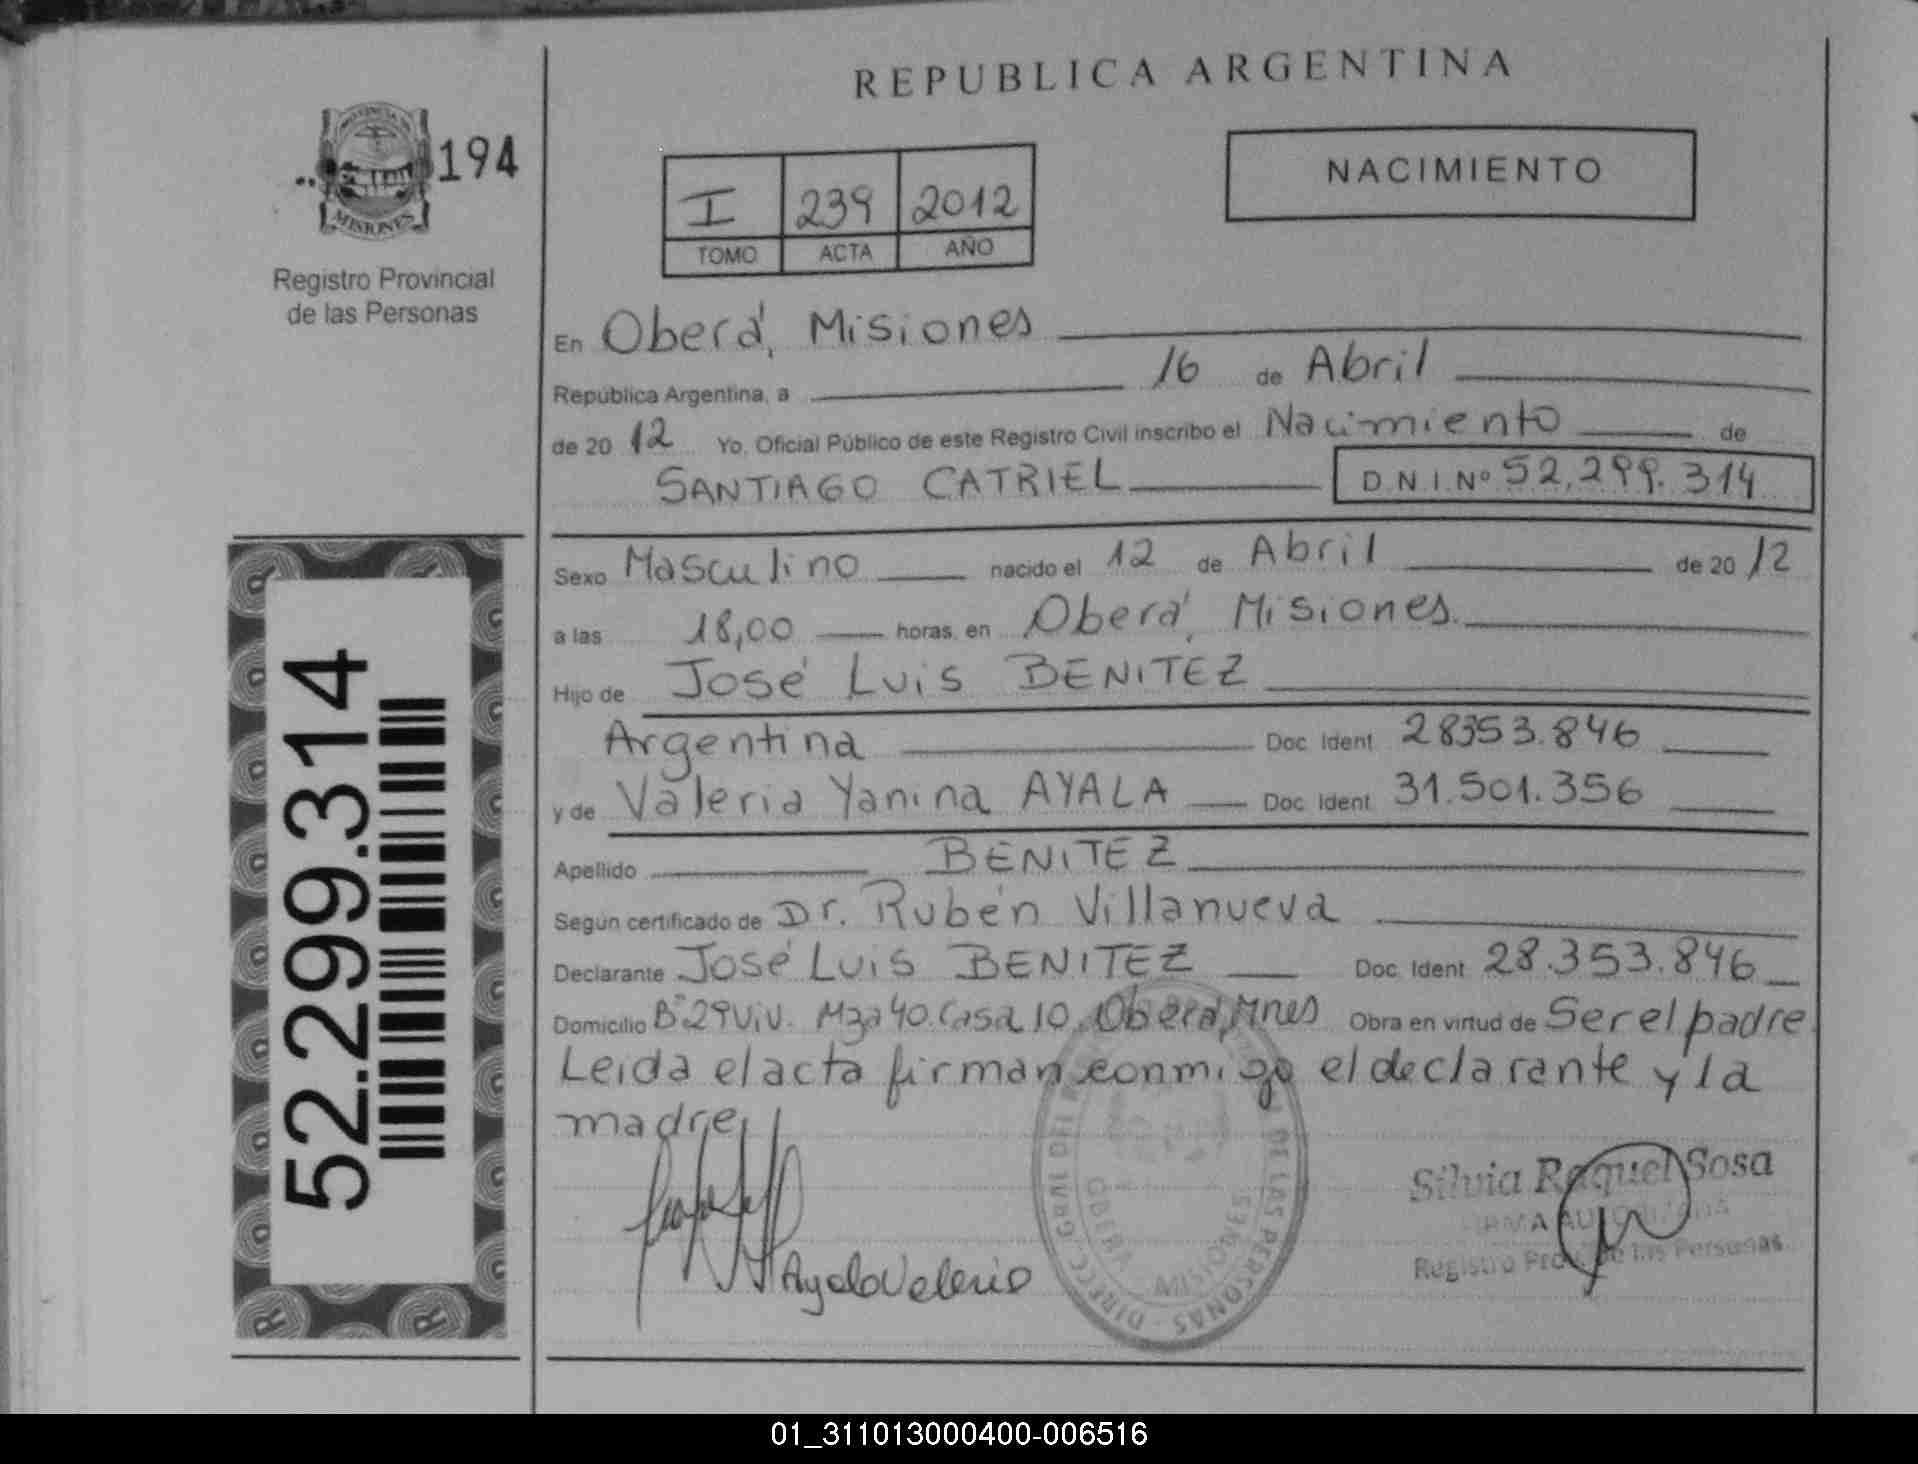 REPUBLICA ARGENTINA
194
PROVINCIA DE
MISIONES
Registro Provincial
de las Personas
I 239 2012
TOMO ACTA AÑO
NACIMIENTO
En Oberá, Misiones
República Argentina, a 16 de Abril
de 20 12 Yo, Oficial Público de este Registro Civil inscribo el Nacimiento de
SANTIAGO CATRIEL D N I. Nº 52.299.314
Sexo Masculino nacido el 12 de Abril de 20 12
a las 18,00 horas, en Oberá, Misiones.
Hijo de José Luis BENITEZ
Argentina Doc. Ident. 28353.846
y de Valeria Yanina AYALA Doc. Ident. 31.501.356
Apellido BENITEZ
Según certificado de Dr. Rubén Villanueva
Declarante José Luis BENITEZ Doc. Ident. 28.353.846
Domicilio Bº 29 Viv. Mza 40. Casa 10. Oberá, Mnes Obra en virtud de Ser el padre.
Leida el acta firman conmigo el declarante y la
madre
Ayala Valeria
DIRECC. GRAL DEL DE LAS PERSONAS
OBERA - MISIONES
Silvia Raquel Sosa
FIRMA AUTORIZADA
Registro Prov. de las Personas
52.299.314
01_311013000400-006516